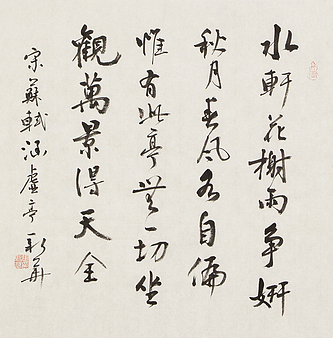 水軒花榭兩爭妍
秋月春風各自偏
惟有此亭無一切坐
觀萬景得天全
宋蘇軾涵虛亭